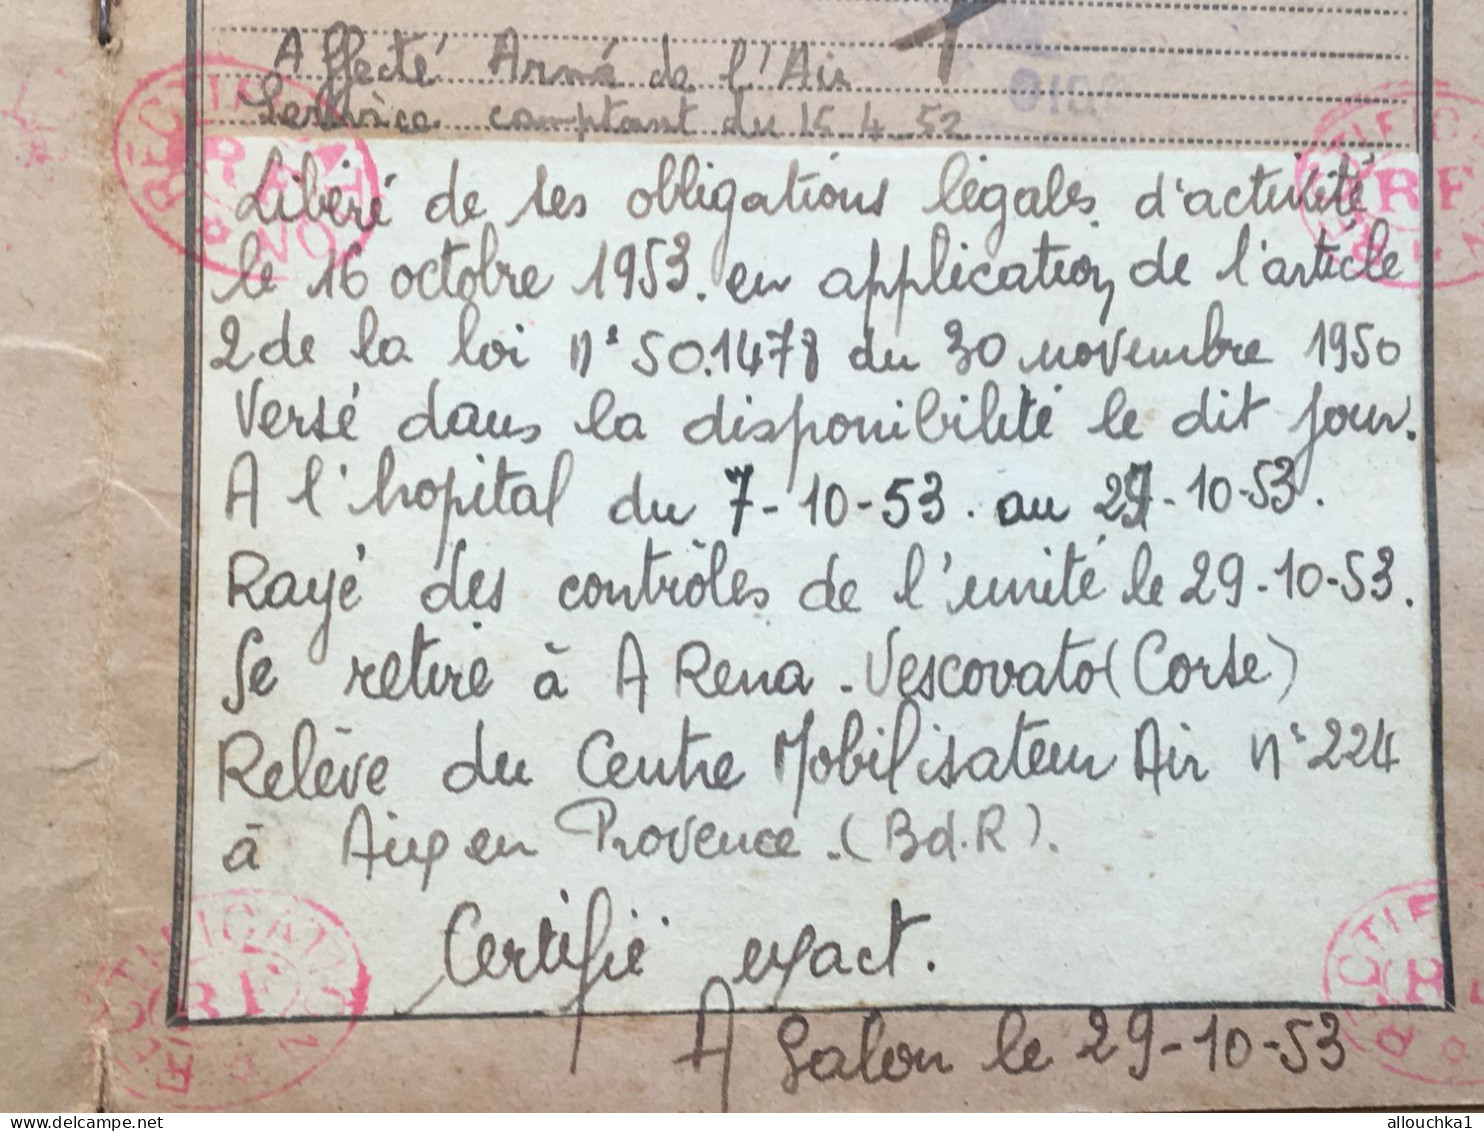 Affecté Armé de l'Air
Service comptant du 15.4.52
Libéré de ses obligations légales d'activité
le 16 octobre 1953. en application, de l'article
2 de la loi n° 50.1478 du 30 novembre 1950
Versé dans la disponibilité le dit jour.
A l'hopital du 7-10-53. au 27-10-53.
Rayé des contrôles de l'unité le 29-10-53.
Se retire à A Rena. Vescovato (Corse)
Relève du Centre Mobilisateur Air n° 224
à Aix en Provence. (Bd.R).
Certifié exact.
A Salon le 29-10-53
RECTIFICATION
RF
RF
RECTIFICATION
RF
delcampe.net
allouchka1